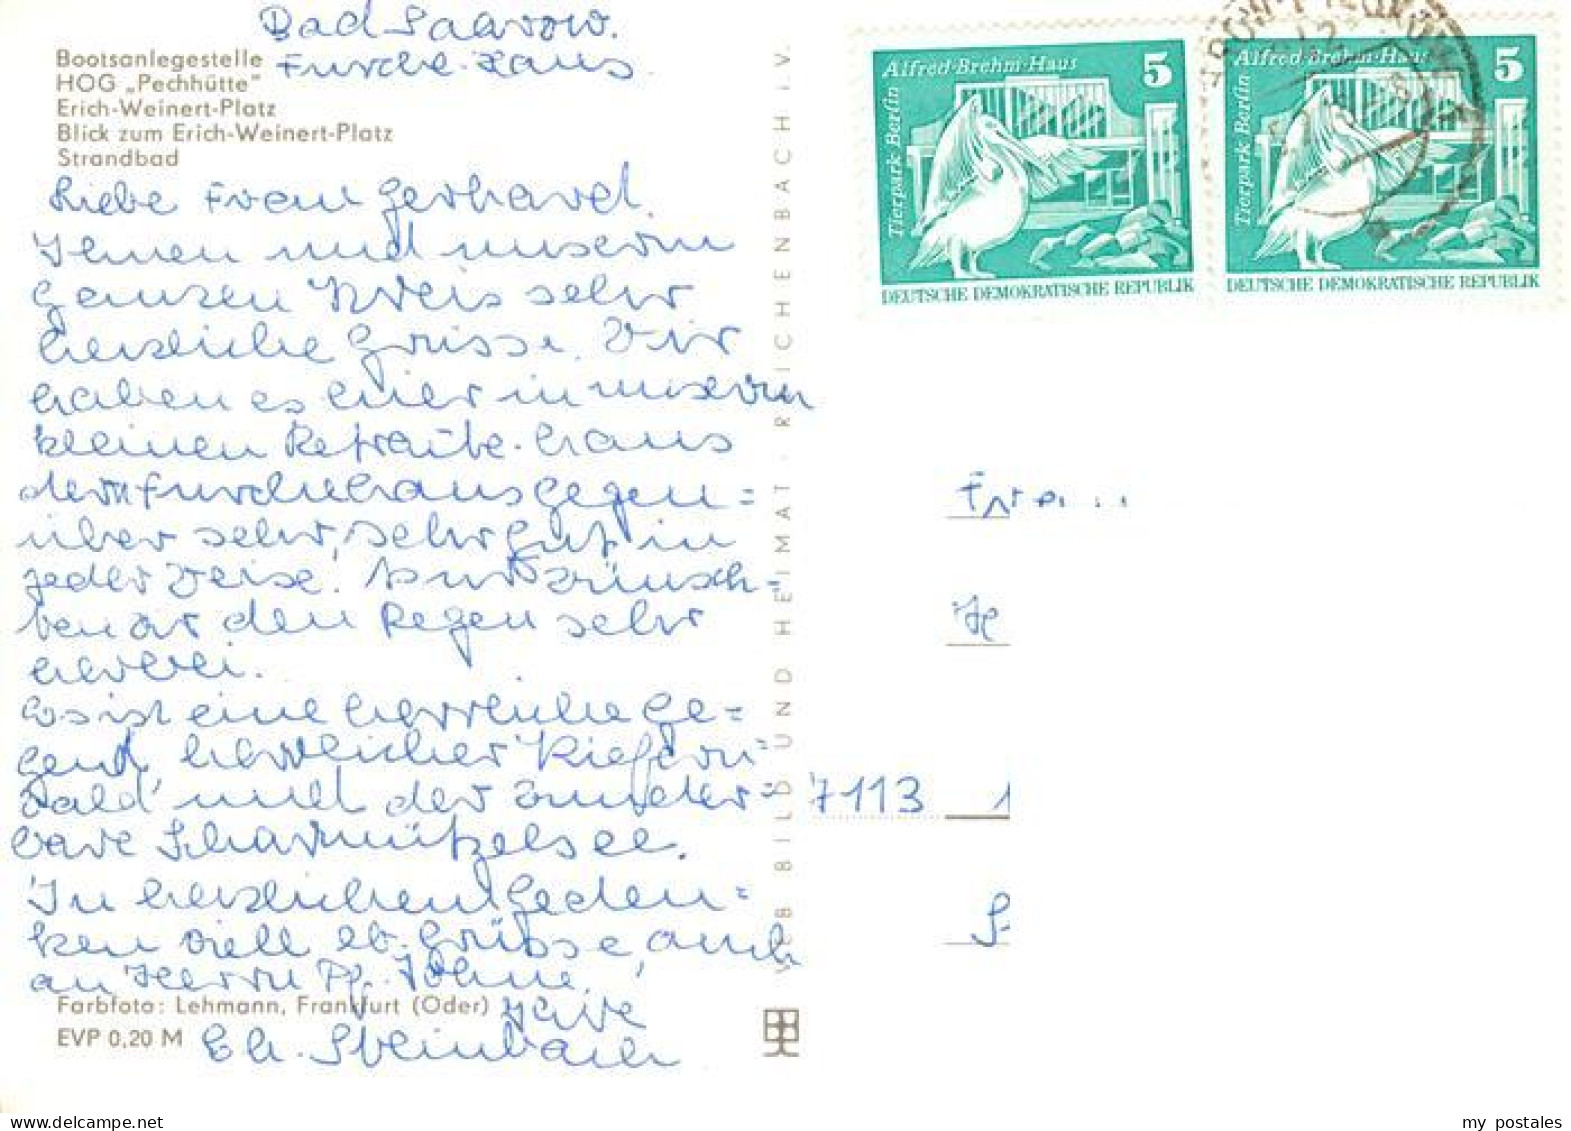 Bad Saarow.
Furche-Haus
Bootsanlegestelle
HOG „Pechhütte"
Erich-Weinert-Platz
Blick zum Erich-Weinert-Platz
Strandbad
Liebe Frau Gerhard.
Ihnen und unserm
ganzen Kreis sehr
herzliche Grüsse. Wir
haben es hier in unserm
kleinen Retraite-haus
dem Furchehaus gegen=
über sehr, sehr gut in
jeder Weise. Nur wünsch=
ten wir den Regen sehr
herbei.
Es ist eine herrliche Ge=
gend, herrlicher Kiefern=
wald und der wunder=
bare Scharmützelsee.
In herzlichem Geden=
ken viele Grüsse, auch
an Herrn Pf.
Ihre
Farbfoto: Lehmann, Frankfurt (Oder)
EVP 0,20 M
Eh. Steinbach
VEB BILD UND HEIMAT · REICHENBACH I. V.
Alfred-Brehm-Haus 5
Tierpark Berlin
DEUTSCHE DEMOKRATISCHE REPUBLIK
Alfred-Brehm-Haus 5
Tierpark Berlin
DEUTSCHE DEMOKRATISCHE REPUBLIK
7113
my postales